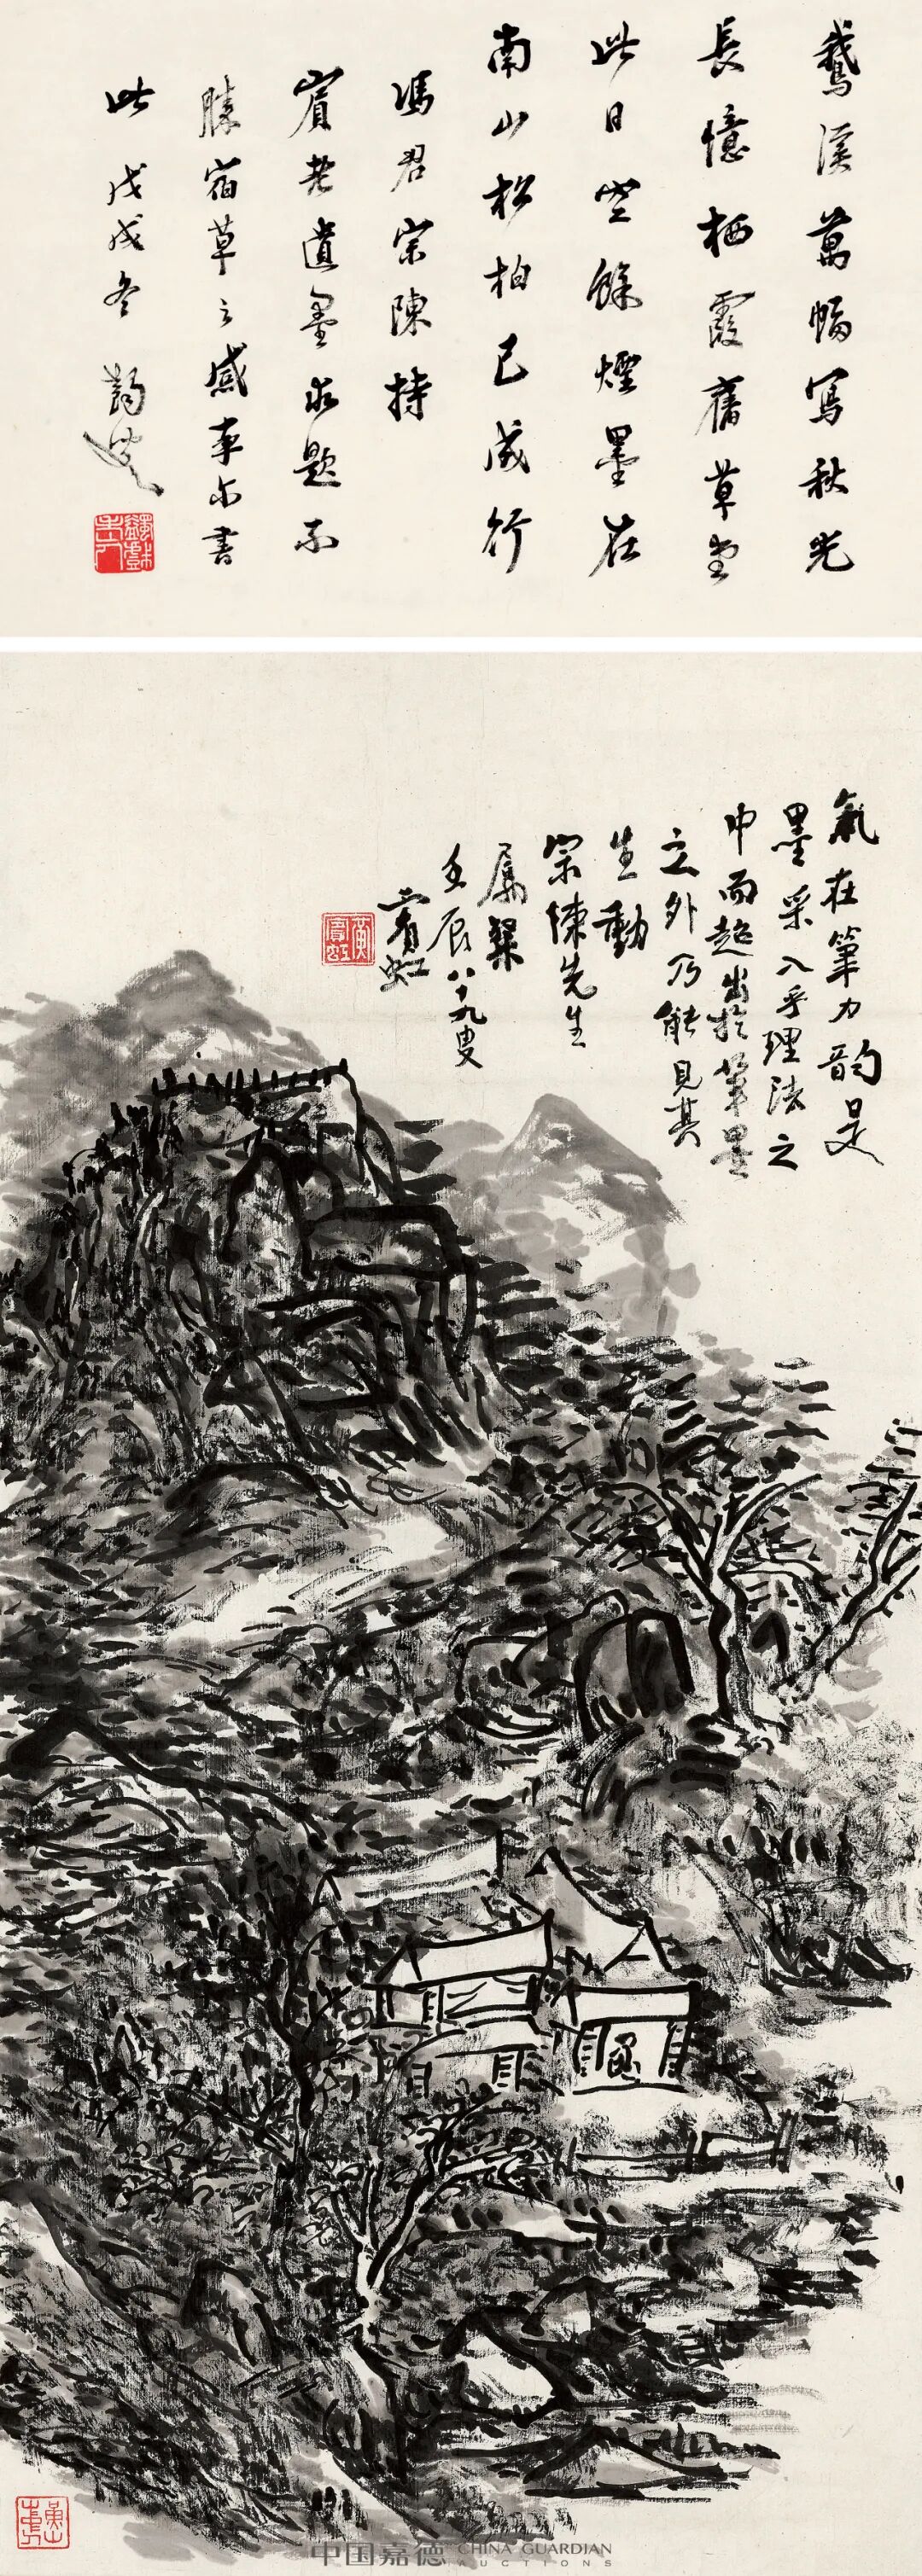 鵝溪萬幅寫秋光
長憶栖霞舊草堂
此日空餘煙墨在
南山松柏已成行
馮君宗陳持
賓老遺墨求題不
勝宿草之感率尔書
此 戊戌冬
氣在筆力韵是
墨采入乎理法之
中而超出於筆墨
之外乃能見其
生動
宗悚先生
屬粲
壬辰八十九叟
賓虹
黃賓虹
中国嘉德 CHINA GUARDIAN
AUCTIONS